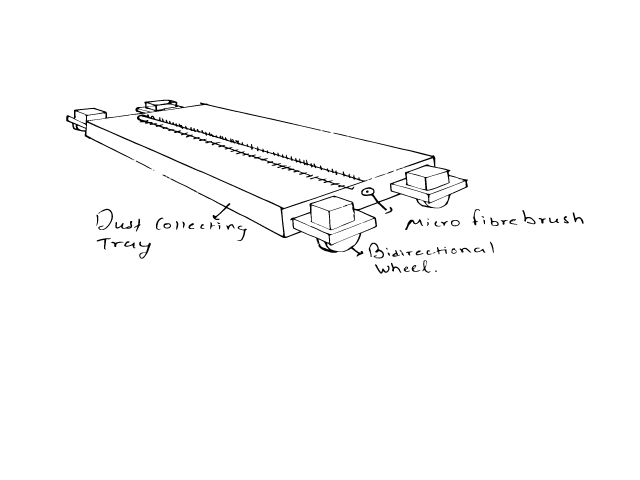 Dust Collecting
Tray
Micro fibre brush
Bidirectional
Wheel.